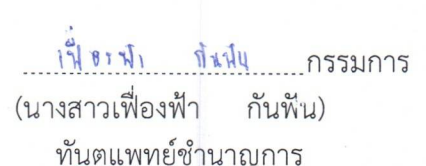 เฟื่องฟ้า กันฟัน กรรมการ
(นางสาวเฟื่องฟ้า กันฟัน)
ทันตแพทย์ชำนาญการ